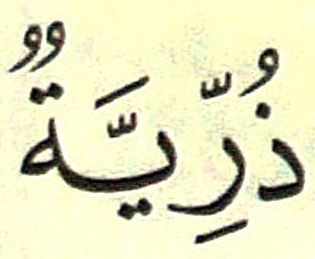 ذُرِّيَّةٌ